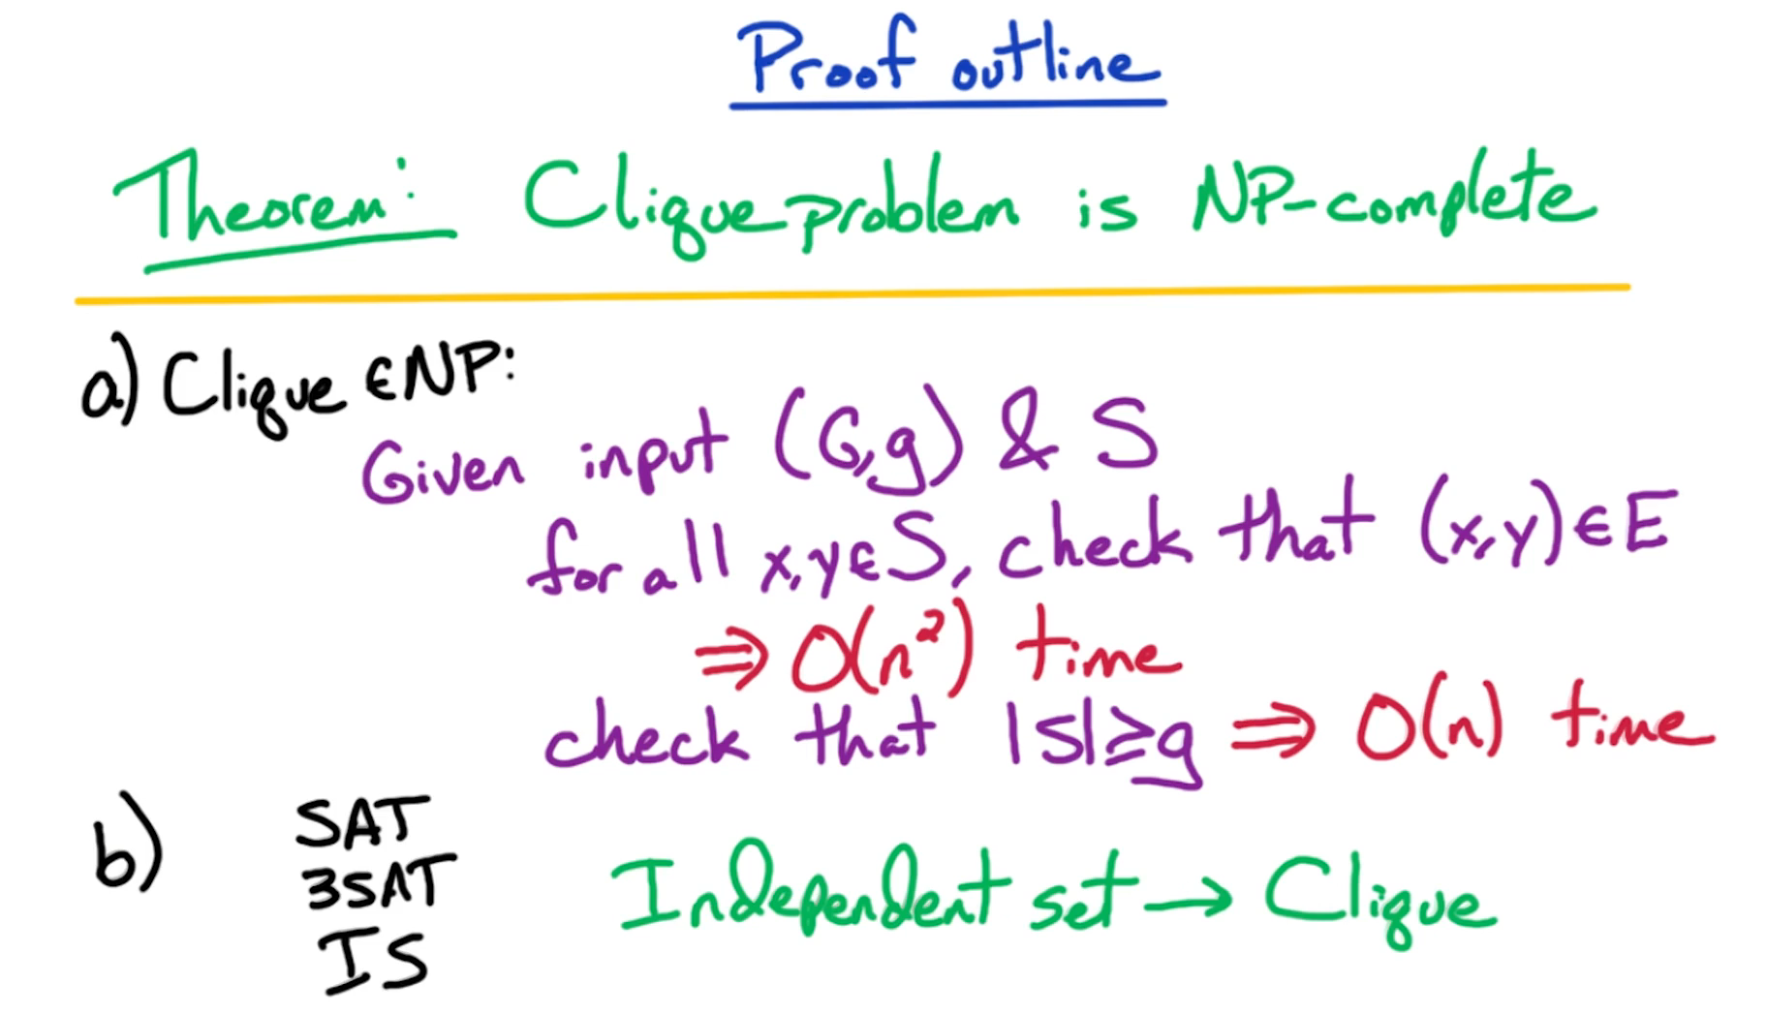 Proof outline
Theorem: Clique problem is NP-complete
a) Clique ∈ NP:
Given input (G,g) & S
for all x,y∈S, check that (x,y)∈E
⇒ O(n²) time
check that |S|≥g ⇒ O(n) time
b) SAT
3SAT
IS
Independent set → Clique